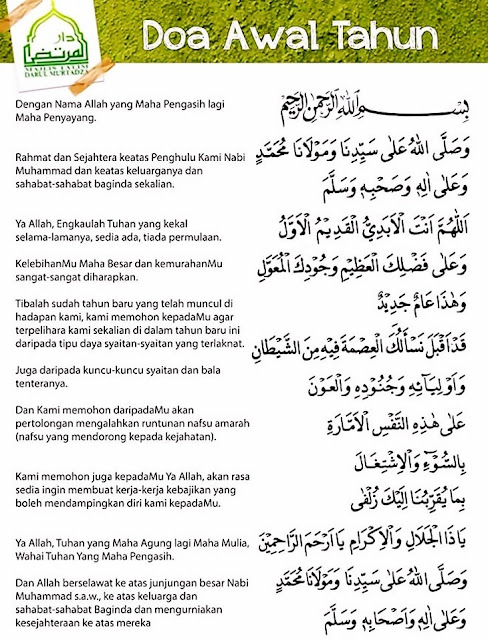 دار
المرتضى
MAJLIS TA'LIM
DARUL MURTADZA
Doa Awal Tahun
Dengan Nama Allah yang Maha Pengasih lagi
Maha Penyayang.
Rahmat dan Sejahtera keatas Penghulu Kami Nabi
Muhammad dan keatas keluarganya dan
sahabat-sahabat baginda sekalian.
Ya Allah, Engkaulah Tuhan yang kekal
selama-lamanya, sedia ada, tiada permulaan.
KelebihanMu Maha Besar dan kemurahanMu
sangat-sangat diharapkan.
Tibalah sudah tahun baru yang telah muncul di
hadapan kami, kami memohon kepadaMu agar
terpelihara kami sekalian di dalam tahun baru ini
daripada tipu daya syaitan-syaitan yang terlaknat.
Juga daripada kuncu-kuncu syaitan dan bala
tenteranya.
Dan Kami memohon daripadaMu akan
pertolongan mengalahkan runtunan nafsu amarah
(nafsu yang mendorong kepada kejahatan).
Kami memohon juga kepadaMu Ya Allah, akan rasa
sedia ingin membuat kerja-kerja kebajikan yang
boleh mendampingkan diri kami kepadaMu.
Ya Allah, Tuhan yang Maha Agung lagi Maha Mulia,
Wahai Tuhan Yang Maha Pengasih.
Dan Allah berselawat ke atas junjungan besar Nabi
Muhammad s.a.w., ke atas keluarga dan
sahabat-sahabat Baginda dan mengurniakan
kesejahteraan ke atas mereka
بِسْمِ اللهِ الرَّحْمٰنِ الرَّحِيْمِ
وَصَلَّى اللهُ عَلٰى سَيِّدِنَا وَمَوْلَانَا مُحَمَّدٍ
وَعَلٰى اٰلِهٖ وَصَحْبِهٖ وَسَلَّمَ
اَللّٰهُمَّ اَنْتَ الْاَبَدِيُّ الْقَدِيْمُ الْاَوَّلُ
وَعَلٰى فَضْلِكَ الْعَظِيْمِ وَجُوْدِكَ الْمُعَوَّلِ
وَهٰذَا عَامٌ جَدِيْدٌ
قَدْ اَقْبَلَ نَسْأَلُكَ الْعِصْمَةَ فِيْهِ مِنَ الشَّيْطَانِ
وَاَوْلِيَآئِهٖ وَجُنُوْدِهٖ وَالْعَوْنَ
عَلٰى هٰذِهِ النَّفْسِ الْاَمَّارَةِ
بِالسُّوْٓءِ وَالْاِشْتِغَالَ
بِمَا يُقَرِّبُنَا اِلَيْكَ زُلْفٰى
يَا ذَا الْجَلَالِ وَالْاِكْرَامِ يَا اَرْحَمَ الرَّاحِمِيْنَ
وَصَلَّى اللهُ عَلٰى سَيِّدِنَا وَمَوْلَانَا مُحَمَّدٍ
وَعَلٰى اٰلِهٖ وَاَصْحَابِهٖ وَسَلَّمَ